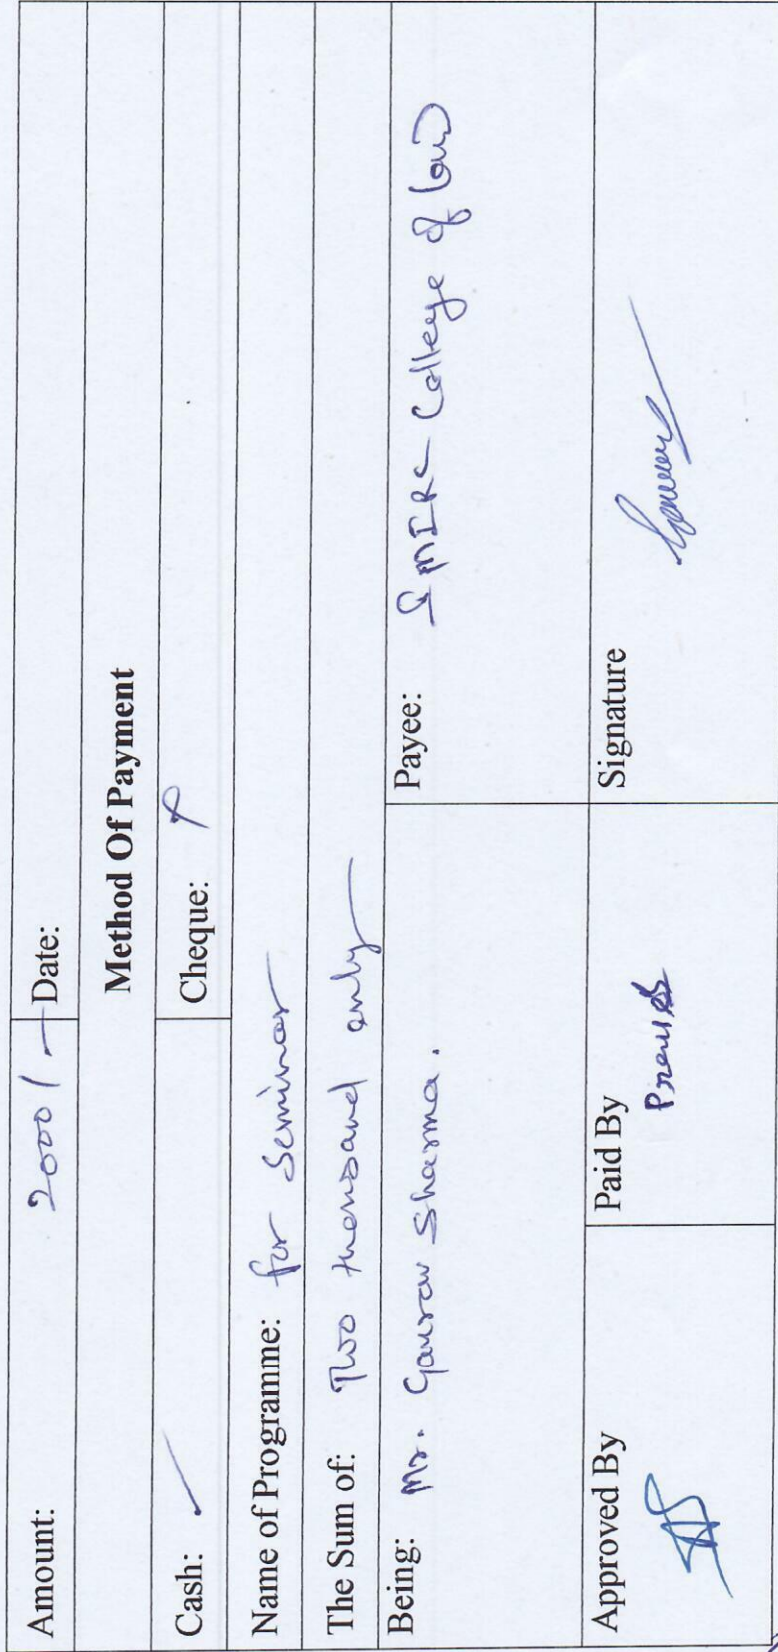 Amount: 2000/- Date:
Method Of Payment
Cash: ✓ Cheque:
Name of Programme: for Seminar
The Sum of: Two thousand only
Being: Mr. Gaurav Sharma. Payee: College of law
Approved By Paid By Signature